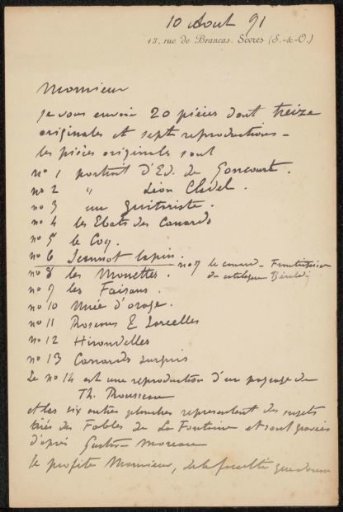 10 Aout 91
13, rue de Brancas. Sèvres (S.-&-O.)
Monsieur
Je vous envoie 20 pièces dont treize
originales et sept reproductions -
les pièces originales sont
n° 1 portrait d'Ed. de Goncourt.
n° 2 " Léon Cladel.
n° 3 un guitariste.
n° 4 les Ebats des Canards
n° 5 le Coq.
n° 6 Jeannot lapin.
n° 7 le canard. du catalogue Béraldi
n° 8 les Mouettes.
n° 9 les Faisans.
n° 10 Nuée d'orage.
n° 11 Roseaux & Sarcelles
n° 12 Hirondelles
n° 13 Canards surpris
Le n° 14 est une reproduction d'un paysage de
Th. Rousseau
et les six autres planches représentent des sujets
tirés des Fables de La Fontaine et sont gravées
d'après Gustave Moreau
Je profite Monsieur, de la faculté